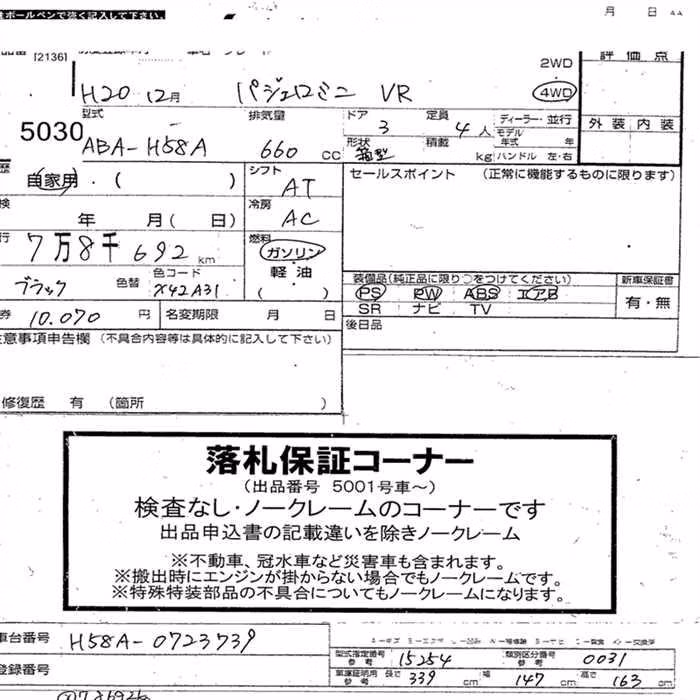 ボールペンで強く記入して下さい。
月 日
[2136]
評価点
2WD
H20 12月 パジェロミニ VR 4WD
型式 排気量 ドア 定員 ディーラー・並行 外装 内装
5030 ABA-H58A 660 cc 3 4人 モデル年式 年
形状 箱型 積載 kg ハンドル 左・右
歴 自家用・( ) シフト AT セールスポイント (正常に機能するものに限ります)
検 年 月( 日) 冷房 AC
行 7万8千692 km 燃料 ガソリン
軽油
( )
ブラック 色替 色コード X42A31
装備品(純正品に限り○をつけてください) 新車保証書
PS PW ABS エアB 有・無
SR ナビ TV
券 10.070 円 名変期限 月 日 後日品
注意事項申告欄 (不具合内容等は具体的に記入して下さい)
修復歴 有 (箇所 )
落札保証コーナー
(出品番号 5001号車~)
検査なし・ノークレームのコーナーです
出品申込書の記載違いを除きノークレーム
※不動車、冠水車など災害車も含まれます。
※搬出時にエンジンが掛からない場合でもノークレームです。
※特殊特装部品の不具合についてもノークレームになります。
車台番号 H58A-0723739
型式指定番号 参考 15254 類別区分番号 参考 0031
登録番号
車庫証明用 参考 長さ 339 cm 幅 147 cm 高さ 163 cm